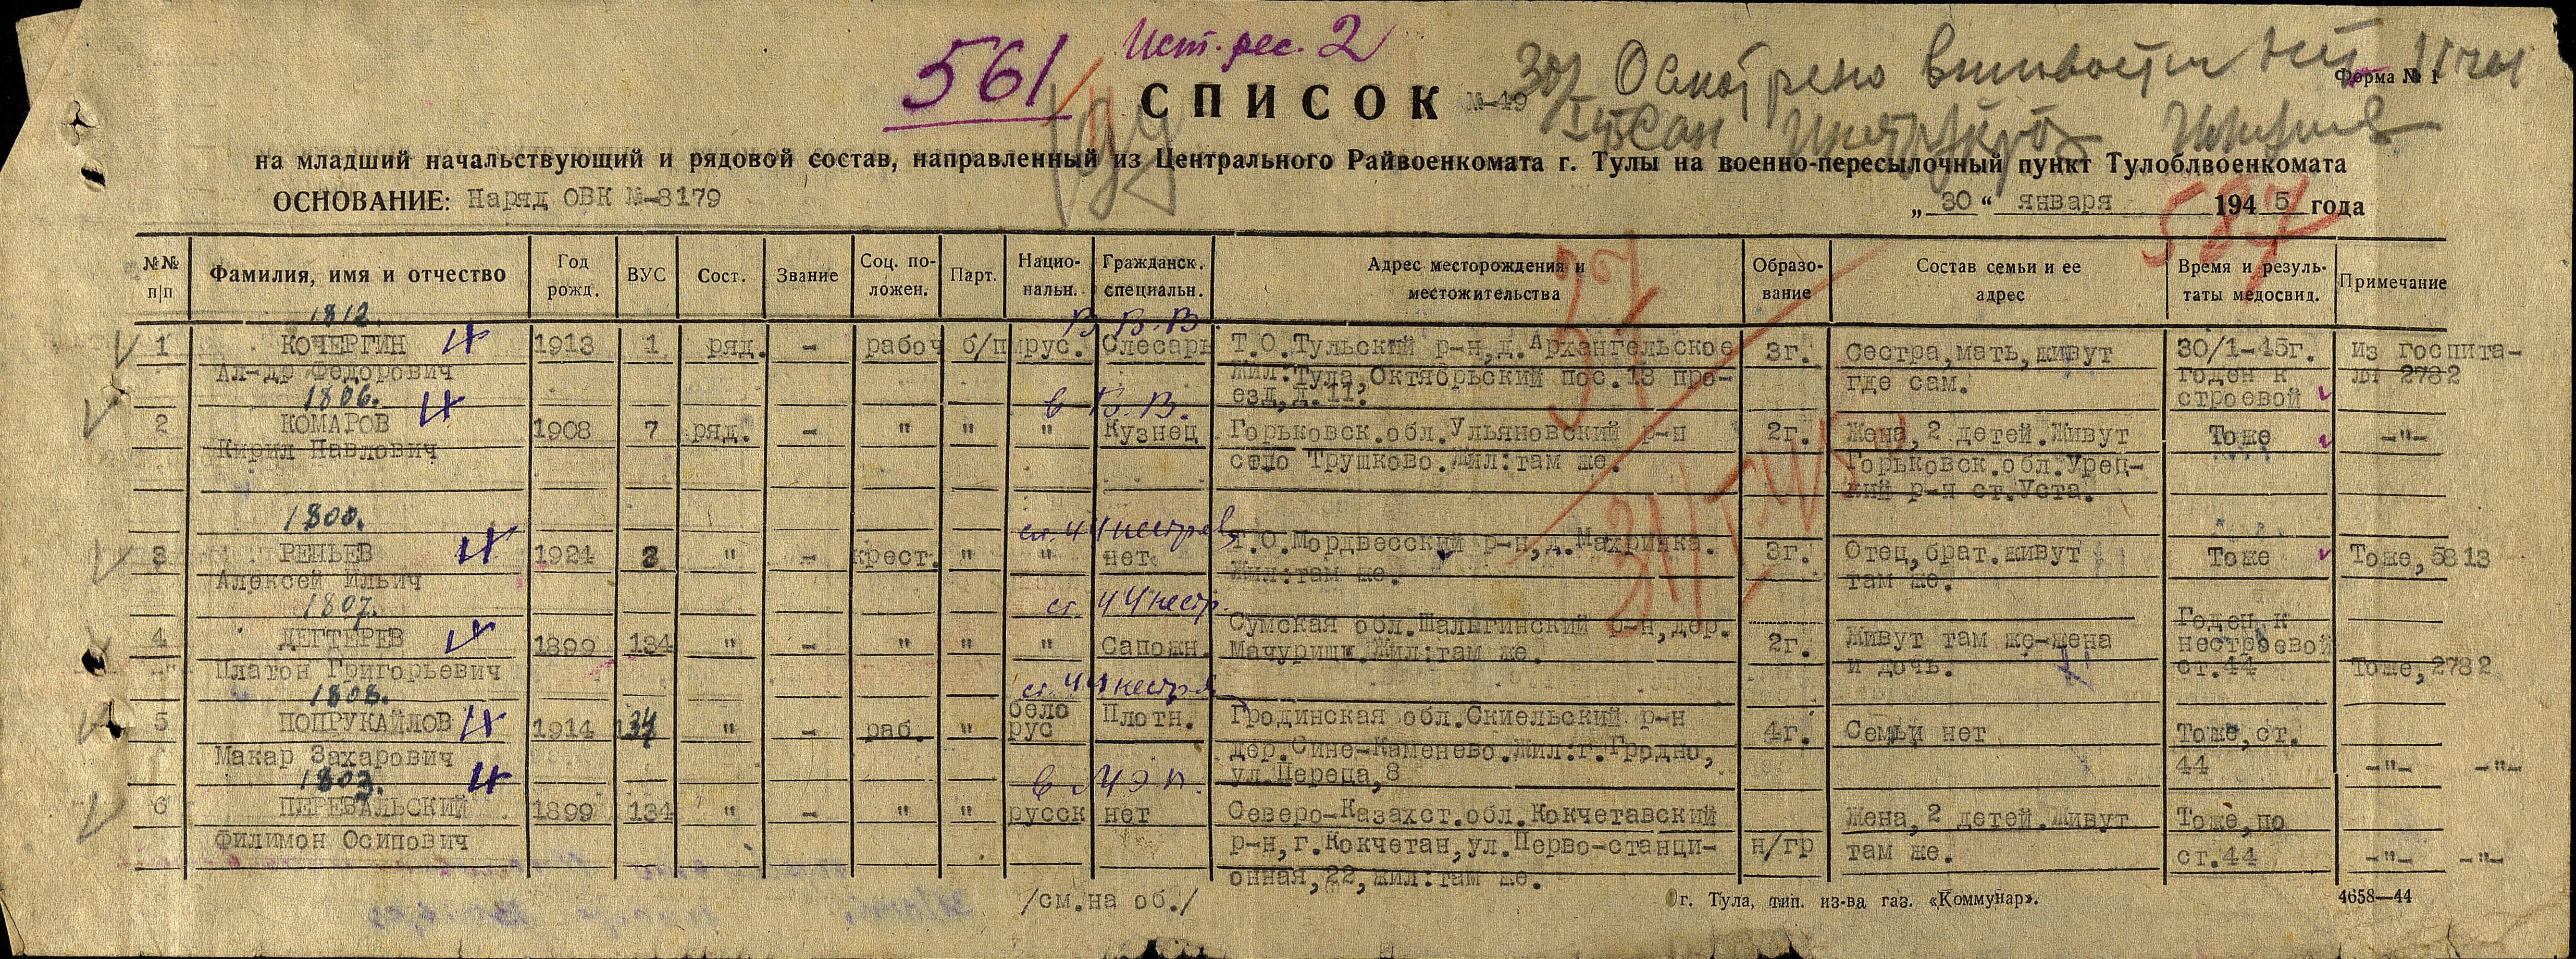 561
Ист. рес. 2
Форма № 1
СПИСОК №-49
30/I Осмотрено вшивости нет
на младший начальствующий и рядовой состав, направленный из Центрального Райвоенкомата г. Тулы на военно-пересылочный пункт Тулоблвоенкомата
ОСНОВАНИЕ: Наряд ОВК №-8179
„ 30 “ января 194 5 года
587
№№ п|п Фамилия, имя и отчество Год рожд. ВУС Сост. Звание Соц. по-ложен. Парт. Нацио-нальн. Гражданск. специальн. Адрес месторождения и местожительства Образо-вание Состав семьи и ее адрес Время и резуль-таты медосвид. Примечание
1812. В В.В.
1 КОЧЕРГИН 1913 1 ряд. - рабоч б/п рус. Слесарь Т.О.Тульский р-н,д.Архангельское 3г. Сестра,мать,живут 30/1-45г. Из госпита-
Ал-др Федорович жил:Тула,Октябрьский пос.13 про- где сам. годен к ля 2782
1806. в В.В. езд,д.11. строевой
2 КОМАРОВ 1908 7 ряд. - " " " Кузнец Горьковск.обл.Ульяновский р-н 2г. Жена,2 детей.Живут Тоже -"-
Кирил Павлович село Трушково.Жил:там же. Горьковск.обл.Урец-
кий р-н ст.Уста.
1800. ст.44 нестроев
3 РЕПЬЕВ 1924 3 " - крест. " " нет. Т.О.Мордвесский р-н,д.Махринка. 3г. Отец,брат.живут Тоже Тоже,5813
Алексей Ильич Жил:там же. там же.
1807. ст. 44 нестр.
Сумская обл.Шалыгинский р-н,дер. Годен к
4 ДЕГТЕРЕВ 1899 134 " - " " " Сапожн. Мачурищи.Жил:там же. 2г. Живут там же-жена нестроевой
Платон Григорьевич и дочь. ст.44 Тоже,2782
1808. ст.44 нестр.
5 ПОПРУКАЙЛОВ 1914 134 " - раб. " бело рус Плотн. Гродинская обл.Скиельский р-н 4г. Семьи нет Тоже,ст.
Макар Захарович дер.Сине-Каменево.Жил:г.Гродно, 44 -"- -"-
1803. ул.Переца,8
6 ПЕРЕВАЛЬСКИЙ 1899 134 " - " " русск нет Северо-Казахст.обл.Кокчетавский Жена,2 детей.Живут Тоже,по
Филимон Осипович р-н,г.Кокчетан,ул.Перво-станци- н/гр там же. ст.44 -"- -"-
онная,22,жил:там же.
/см.на об./
г. Тула, тип. из-ва газ. «Коммунар». 4658—44